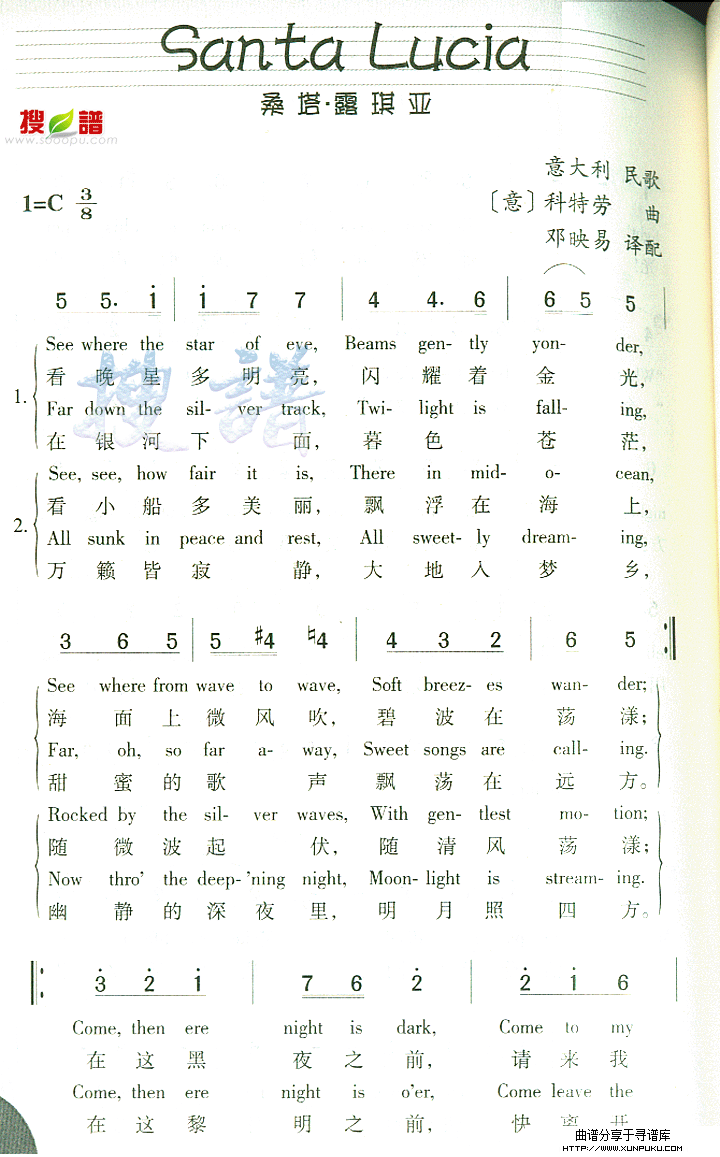 Santa Lucia
桑塔·露琪亚
搜谱
www.sooopu.com
意大利 民歌
1=C 3/8
〔意〕科特劳 曲
邓映易 译配
5 5. i | i 7 7 | 4 4. 6 | 6 5 5 |
See where the star of eve, Beams gen- tly yon- der,
1. 看晚星多明亮, 闪耀着金光,
Far down the sil- ver track, Twi- light is fall- ing,
在银河下面, 暮色苍茫,
See, see, how fair it is, There in mid- o- cean,
看小船多美丽, 飘浮在海上,
2. All sunk in peace and rest, All sweet- ly dream- ing,
万籁皆寂静, 大地入梦乡,
3 6 5 | 5 #4 ♮4 | 4 3 2 | 6 5 :|
See where from wave to wave, Soft breez- es wan- der;
海面上微风吹, 碧波在荡漾;
Far, oh, so far a- way, Sweet songs are call- ing.
甜蜜的歌声 飘荡在远方。
Rocked by the sil- ver waves, With gen- tlest mo- tion;
随微波起伏, 随清风荡漾;
Now thro' the deep- 'ning night, Moon- light is stream- ing.
幽静的深夜里, 明月照四方。
|: 3̇ 2̇ i | 7 6 2̇ | 2̇ i 6 |
Come, then ere night is dark, Come to my
在这黑夜之前, 请来我
Come, then ere night is o'er, Come leave the
在这黎明之前, 快离开
曲谱分享于寻谱库
HTTP://WWW.XUNPUKU.COM